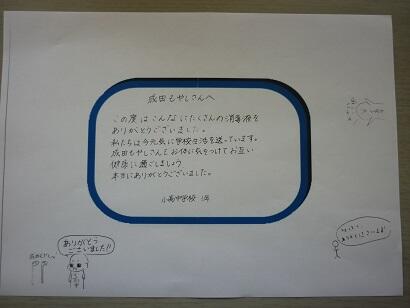 成田もやしさんへ
この度はこんなにたくさんの消毒液を
ありがとうございました。
私たちは今元気に学校生活を送っています。
成田もやしさんもお体に気をつけてお互い
健康に過ごしましょう
本当にありがとうございました。
小高中学校 1年
ありがとう
ございました!!